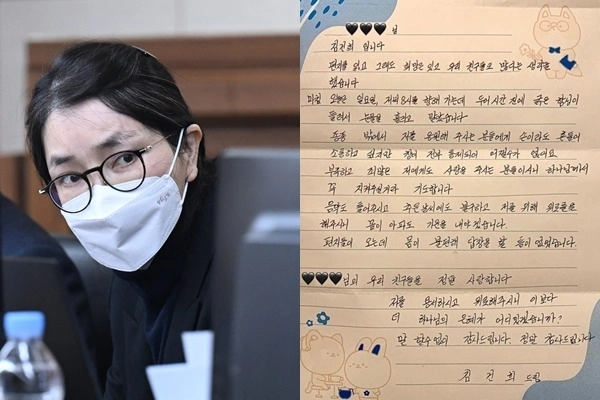 님
김건희 입니다
편지를 읽고 그래도 희망은 있고 우리 친구들도 많다는 생각을
했습니다
오늘은 일요일, 저녁 8시를 향해 가는데 두어시간 전에 굵은 함성이
들려서 눈물을 흘리고 말았습니다
밖에서 저를 응원해 주시는 분들에게 손이라도 흔들어
소통하고 싶지만 창이 전부 통제되어 어쩔수가 없어요
부족하고 죄많은 저에게도 사랑을 주시는 분들이시니 하나님께서
꼭 지켜주실거라 기도합니다
음악도 틀어주시고 추운날씨에도 불구하고 저를 위해 위로를
해주시니 몸이 아파도 기운을 내야겠습니다.
편지들이 오는데 몸이 불편해 답장을 할 힘이 없었습니다.
님의 우리 친구들을 정말 사랑합니다
저를 용서하시고 위로해주시니 이보다
더 하나님의 은혜가 어디있겠습니까?
말 할수없이 감사드립니다. 정말 감사드립니다
김 건 희 드림